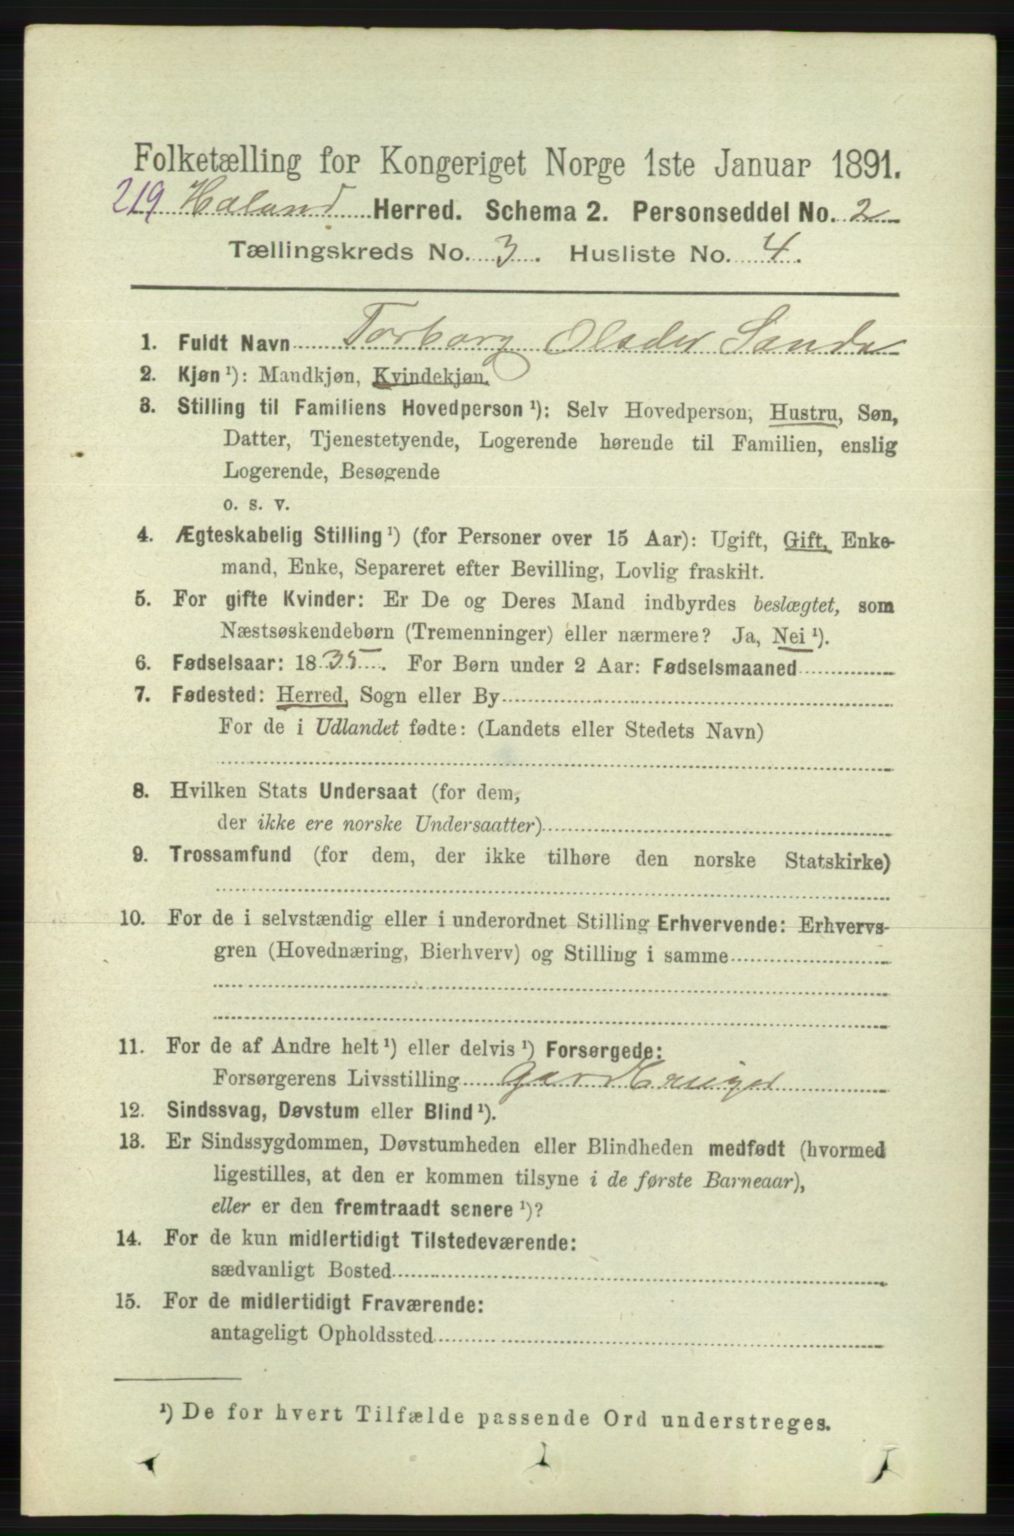 Folketælling for Kongeriget Norge 1ste Januar 1891.
219 Haland Herred. Schema 2. Personseddel No. 2
Tællingskreds No. 3. Husliste No. 4.
1. Fuldt Navn Torborg Olsdtr Sande
2. Kjøn ¹): Mandkjøn, Kvindekjøn.
3. Stilling til Familiens Hovedperson ¹): Selv Hovedperson, Hustru, Søn,
Datter, Tjenestetyende, Logerende hørende til Familien, enslig
Logerende, Besøgende
o. s. v.
4. Ægteskabelig Stilling ¹) (for Personer over 15 Aar): Ugift, Gift, Enke-
mand, Enke, Separeret efter Bevilling, Lovlig fraskilt.
5. For gifte Kvinder: Er De og Deres Mand indbyrdes beslægtet, som
Næstsøskendebørn (Tremenninger) eller nærmere? Ja, Nei ¹).
6. Fødselsaar: 1835. For Børn under 2 Aar: Fødselsmaaned
7. Fødested: Herred, Sogn eller By
For de i Udlandet fødte: (Landets eller Stedets Navn)
8. Hvilken Stats Undersaat (for dem,
der ikke ere norske Undersaatter)
9. Trossamfund (for dem, der ikke tilhøre den norske Statskirke)
10. For de i selvstændig eller i underordnet Stilling Erhvervende: Erhvervs-
gren (Hovednæring, Bierhverv) og Stilling i samme
11. For de af Andre helt ¹) eller delvis ¹) Forsørgede:
Forsørgerens Livsstilling
12. Sindssvag, Døvstum eller Blind ¹).
13. Er Sindssygdommen, Døvstumheden eller Blindheden medfødt (hvormed
ligestilles, at den er kommen tilsyne i de første Barneaar),
eller er den fremtraadt senere ¹)?
14. For de kun midlertidigt Tilstedeværende:
sædvanligt Bosted
15. For de midlertidigt Fraværende:
antageligt Opholdssted
¹) De for hvert Tilfælde passende Ord understreges.